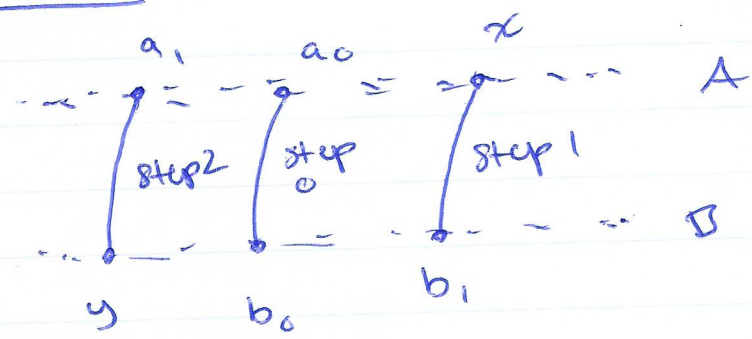 a₁ a₀ x
A
step2 step 0 step 1
B
y b₀ b₁